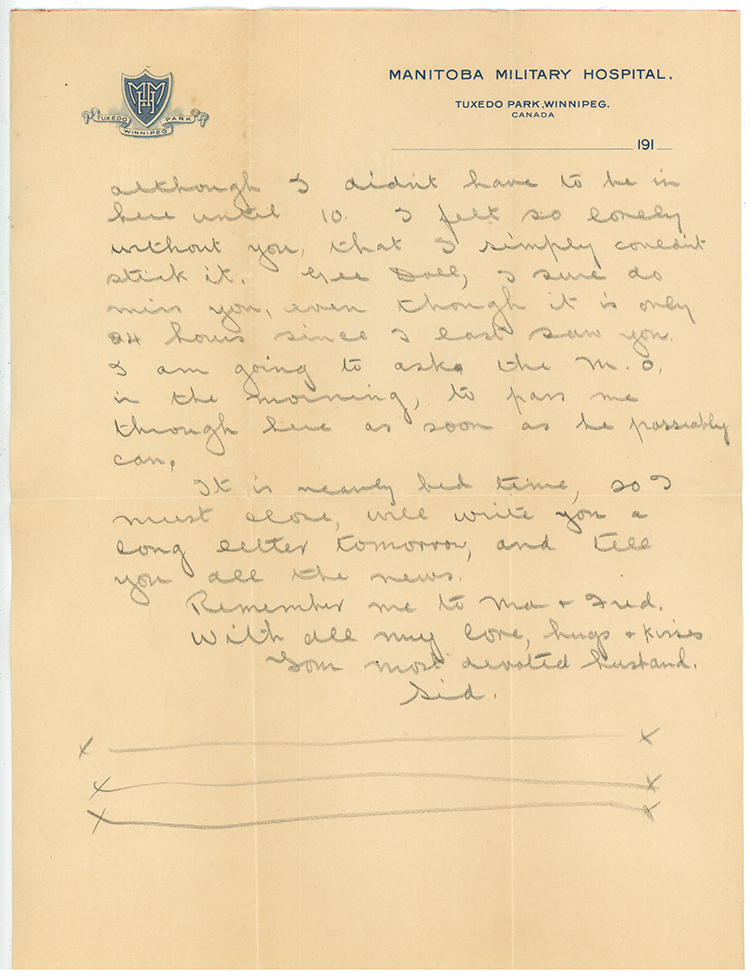 MHM
TUXEDO PARK
WINNIPEG
MANITOBA MILITARY HOSPITAL.
TUXEDO PARK, WINNIPEG.
CANADA
191
although I didn't have to be in
here until 10. I felt so lonely
without you, that I simply couldn't
stick it. Gee Doll, I sure do
miss you, even though it is only
24 hours since I last saw you.
I am going to ask the M.O.
in the morning, to pass me
through here as soon as he possiably
can.
It is nearly bed time, so I
must close, will write you a
long letter tomorrow, and tell
you all the news.
Remember me to Ma + Fred.
With all my love, hugs + kisses
Your most devoted husband.
Sid.
x x
x x
x x